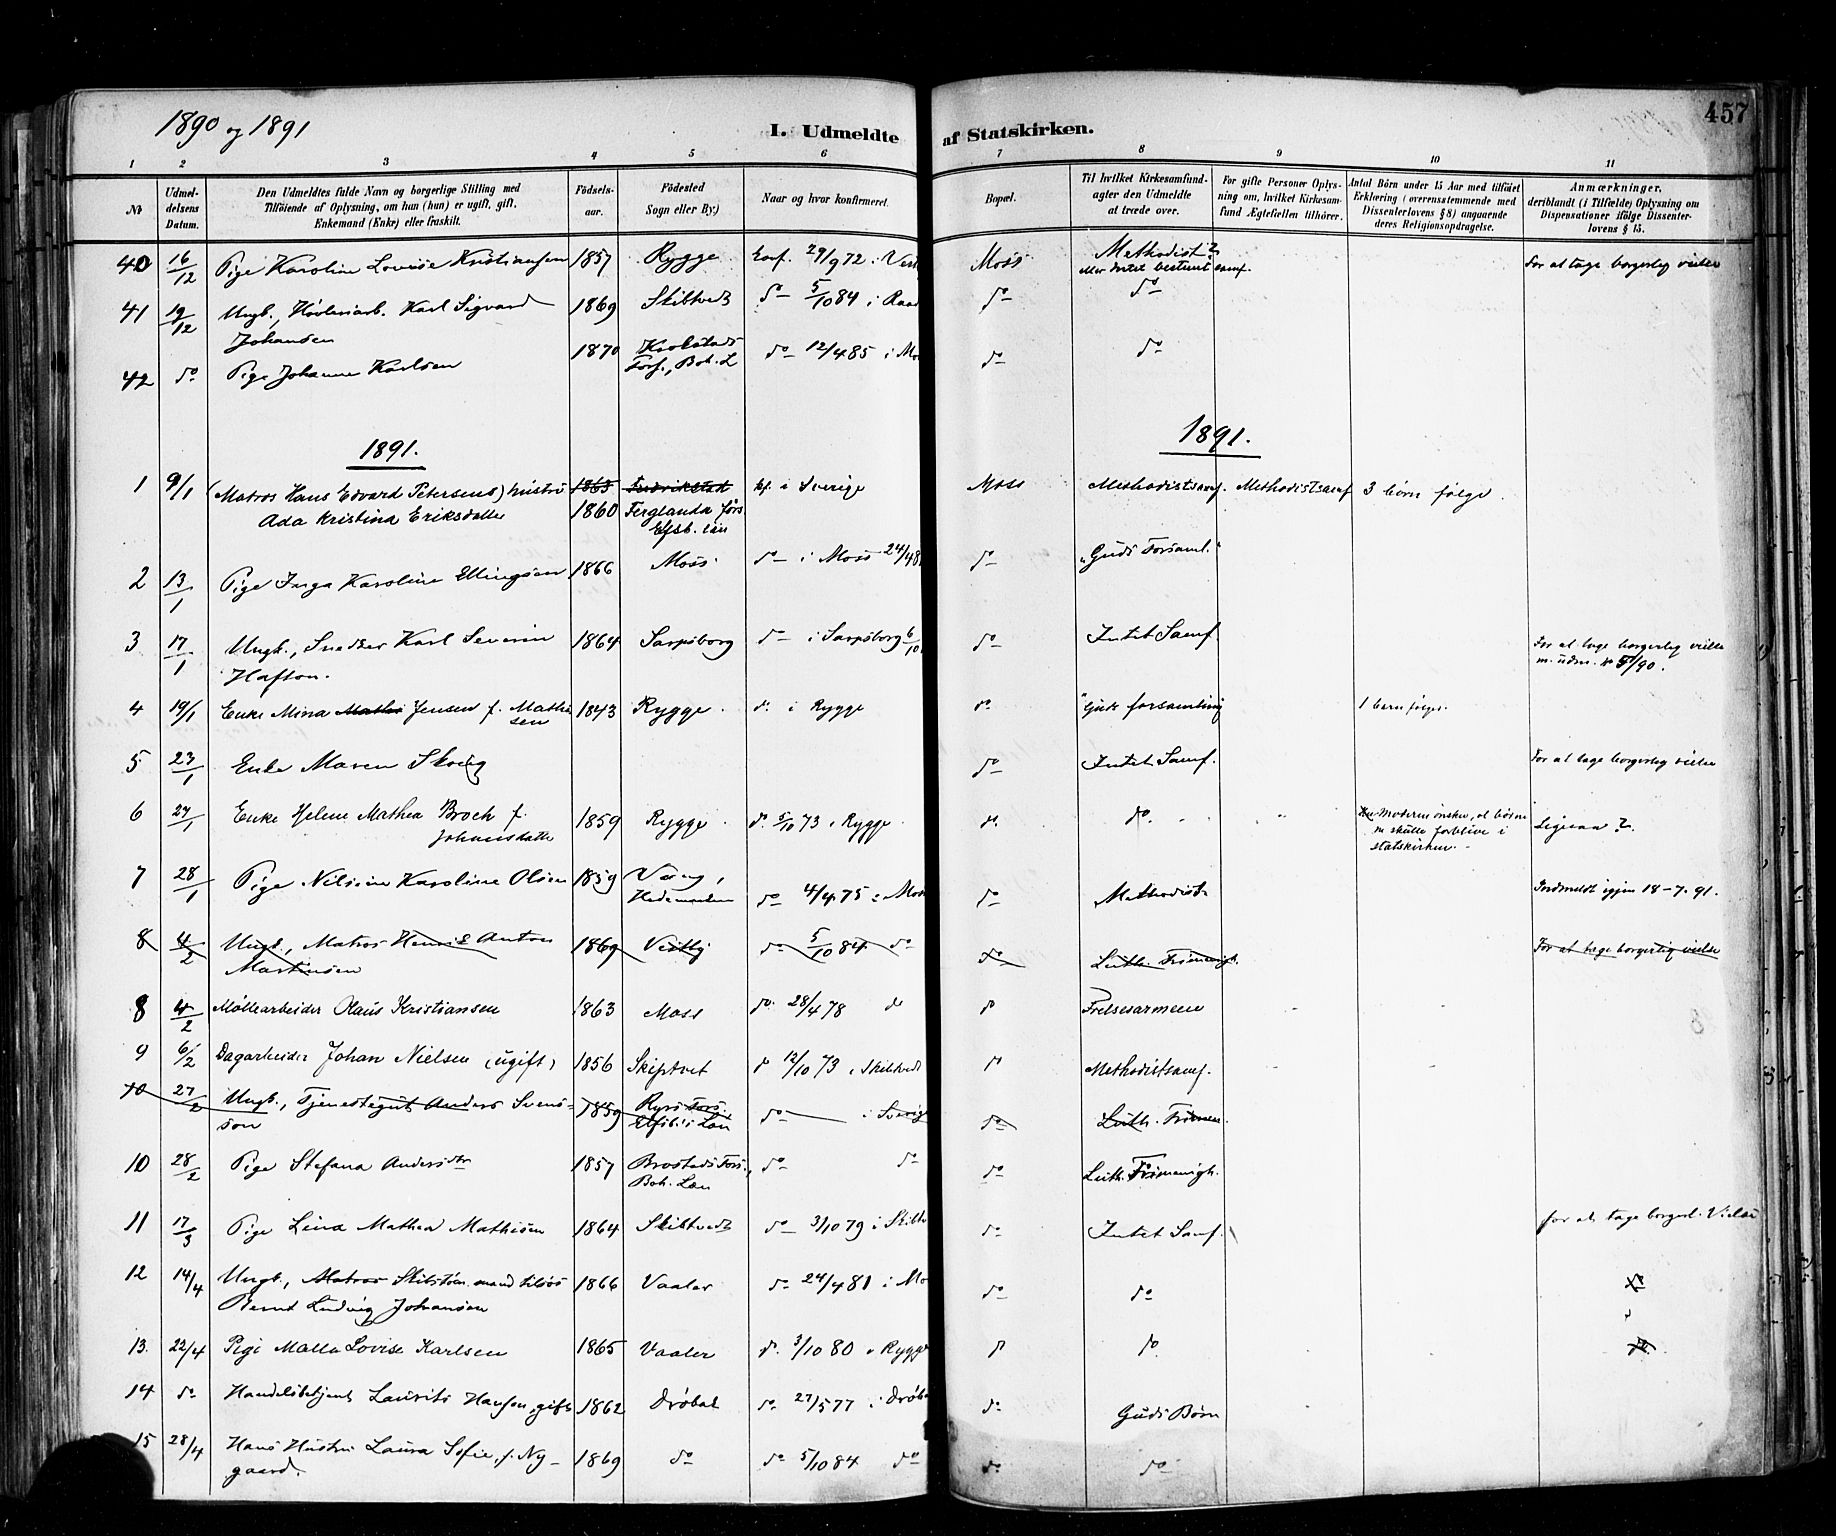 1890 og 1891
I. Udmeldte af Statskirken.
457
1 2 3 4 5 6 7 8 9 10 11
№ | Udmeldelsens Datum. | Den Udmeldtes fulde Navn og borgerlige Stilling med Tilføiende af Oplysning, om han (hun) er ugift, gift, Enkemand (Enke) eller fraskilt. | Fødselsaar. | Fødested Sogn eller By.) | Naar og hvor konfirmeret. | Bopæl. | Til hvilket Kirkesamfund agter den Udmeldte at træde over. | For gifte Personer Oplysning om, hvilket Kirkesamfund Ægtefællen tilhører. | Antal Børn under 15 Aar med tilføiet Erklæring (overensstemmende med Dissenterlovens § 8) angaaende deres Religionsopdragelse. | Anmærkninger, deriblandt (i Tilfælde) Oplysning om Dispensationer ifølge Dissenterlovens § 15.
40 16/12 Pige Karoline Lovise Kristiansen 1857 Rygge Conf. 29/9 72 i Vest Moss Methodist? eller intet bestemt samf. For at tage borgerlig vielse
41 19/12 Ungk., Høvleriarb. Karl Sigvard Johansen 1869 Skibtvedt do 5/10 84 i Raad do do
42 do Pige Johanne Karlsen 1870 Krokstads Fors., Boh. L do 12/4 85 i Mo do do
1891. 1891.
1 9/1 (Matros Hans Edvard Petersens) hustru Ada Kristina Eriksdatter 1863 1860 Fredrikstad Ferglanda förs Elfsb. län kf. i Sverige Moss Methodistsamf. Methodistsamf 3 børn følge.
2 13/1 Pige Inga Karoline Ellingsen 1866 Moss do i Moss 24/4 8 do "Guds Forsaml."
3 17/1 Ungk., Snedker Karl Severin Hafton. 1864 Sarpsborg do i Sarpsborg 6/10 do Intet Samf. For at tage borgerlig vielse m. udm. № 5/90.
4 19/1 Enke Mina Mathi Jensen f. Mathisen 1843 Rygge do i Rygge do "Guds forsamling 1 barn følger.
5 23/1 Enke Maren Skoug do Intet Samf. For at tage borgerlig vielse
6 27/1 Enke Helene Mathea Broch f. Johansdatter 1859 Rygge do 5/10 73 i Rygge do do Moderen ønsker, at børnene skulle forblive i statskirken. Ligesaa?
7 28/1 Pige Nilsine Karoline Olsen 1859 Vang, Hedemarken do 4/4 75 i Moss do Methodist Indmeldt igjen 18-7-91.
8 4/2 Ungk., Matros Henrik Anton Martinsen 1869 Vestby do 5/10 84 do do Luth. Frimenigh. For at tage borgerlig vielse
8 4/2 Møllearbeider Olaus Kristiansen 1863 Moss do 28/4 78 do do Frelsesarmeen
9 6/2 Dagarbeider Johan Nielsen (ugift) 1856 Skiptvet do 12/10 73 i Skibtvedt do Methodistsamf.
10 27/2 Ungk., Tjenestegut Anders Svensson 1859 Ryrs Fors. Elfsb. i Län do i Sverig do Luth. Frimen.
10 28/2 Pige Stefana Andersdtr 1857 Brostads Fors., Boh. Län do do do Luth. Frimenigh.
11 17/3 Pige Lina Mathea Mathisen 1864 Skibtvedt do 3/10 79 i Skibtv do Intet Samf. for at tage borgerl. Vielse
12 14/4 Ungk., Matros Skibstømmermand tilsøs Bernt Ludvig Johansen 1866 Vaaler do 24/4 81 i Mo do do do
13. 22/4 Pige Malla Lovise Karlsen 1865 Vaaler do 3/10 80 i Rygge do do do
14 do Handelsbetjent Laurits Hansen, gift 1862 Drøbak do 27/5 77 i Drøba do Guds Børn
15 28/4 Hans Hustru Laura Sofie, f. Nygaard. 1869 do do 5/10 84 do do do